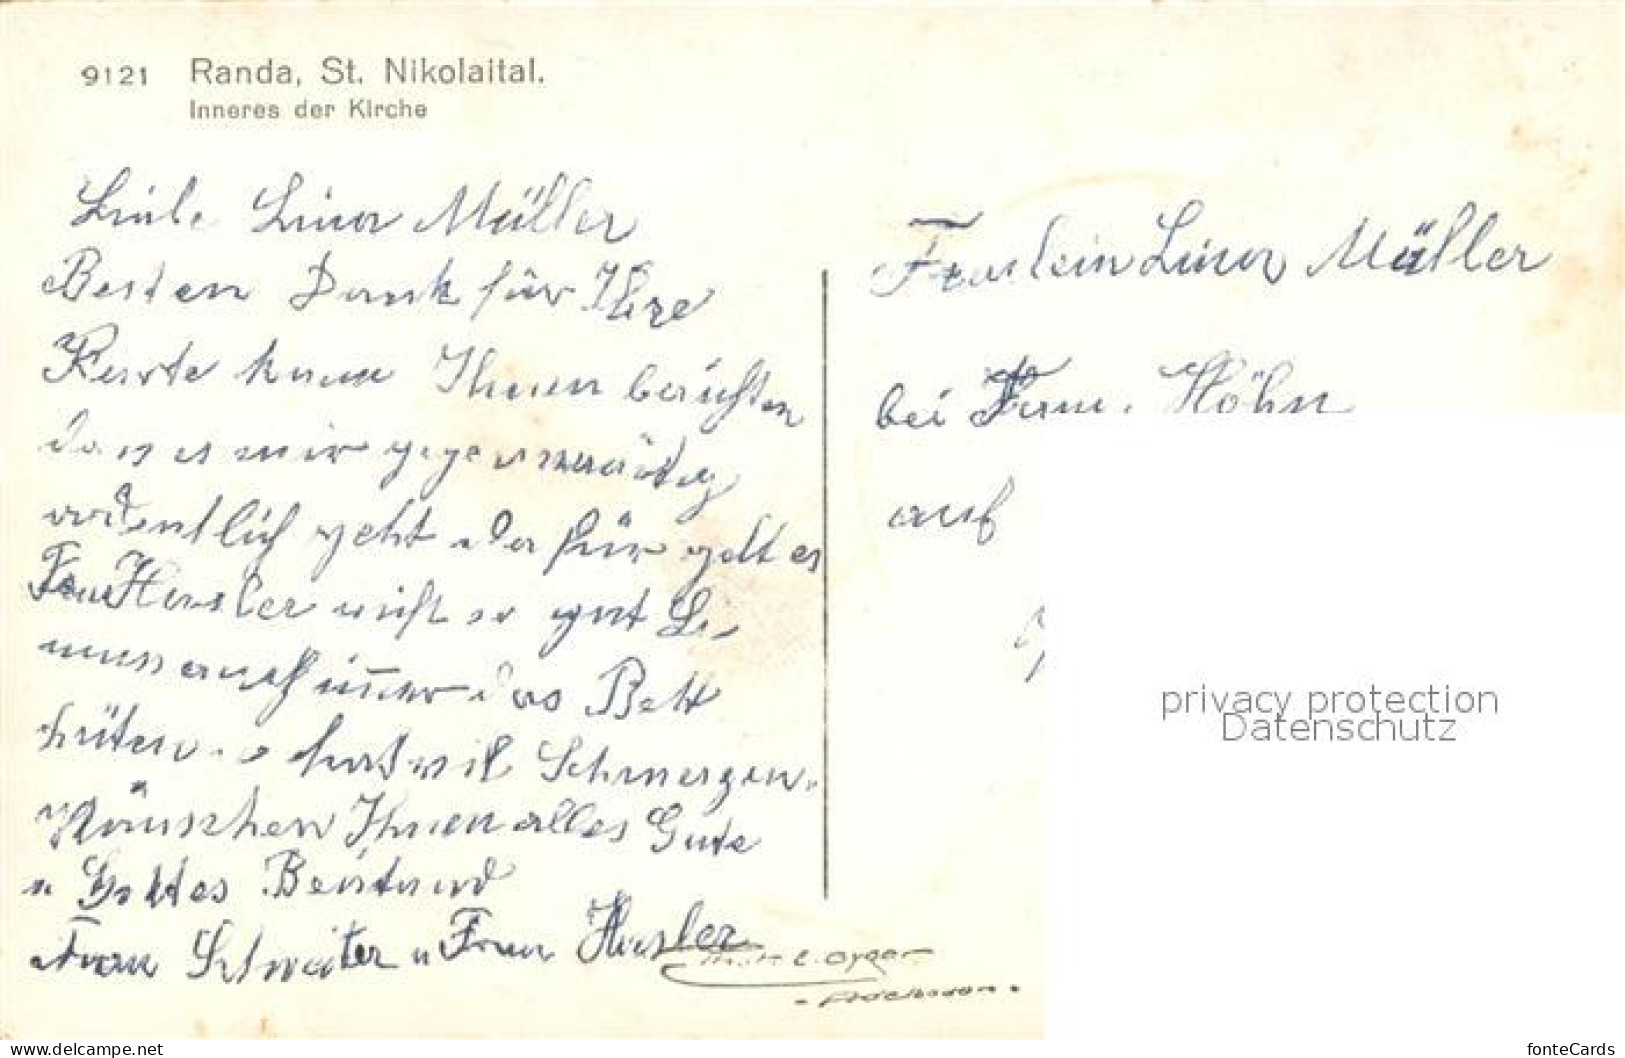 9121 Randa, St. Nikolaital.
Inneres der Kirche
Liebe Lina Müller
Besten Dank für Ihre
Karte kann Ihnen berichten
dass es mir gegenwärtig
ordentlich geht dafür geht es
Frau nicht so gut Sie
muss auch immer das Bett
hüten hat viel Schmerzen.
Wünschen Ihnen alles Gute
u Gottes Beistand
Frau u Frau
Fraulein Lina Müller
bei Fam. Höhn
auf
privacy protection
Datenschutz
www.delcampe.net
fonteCards